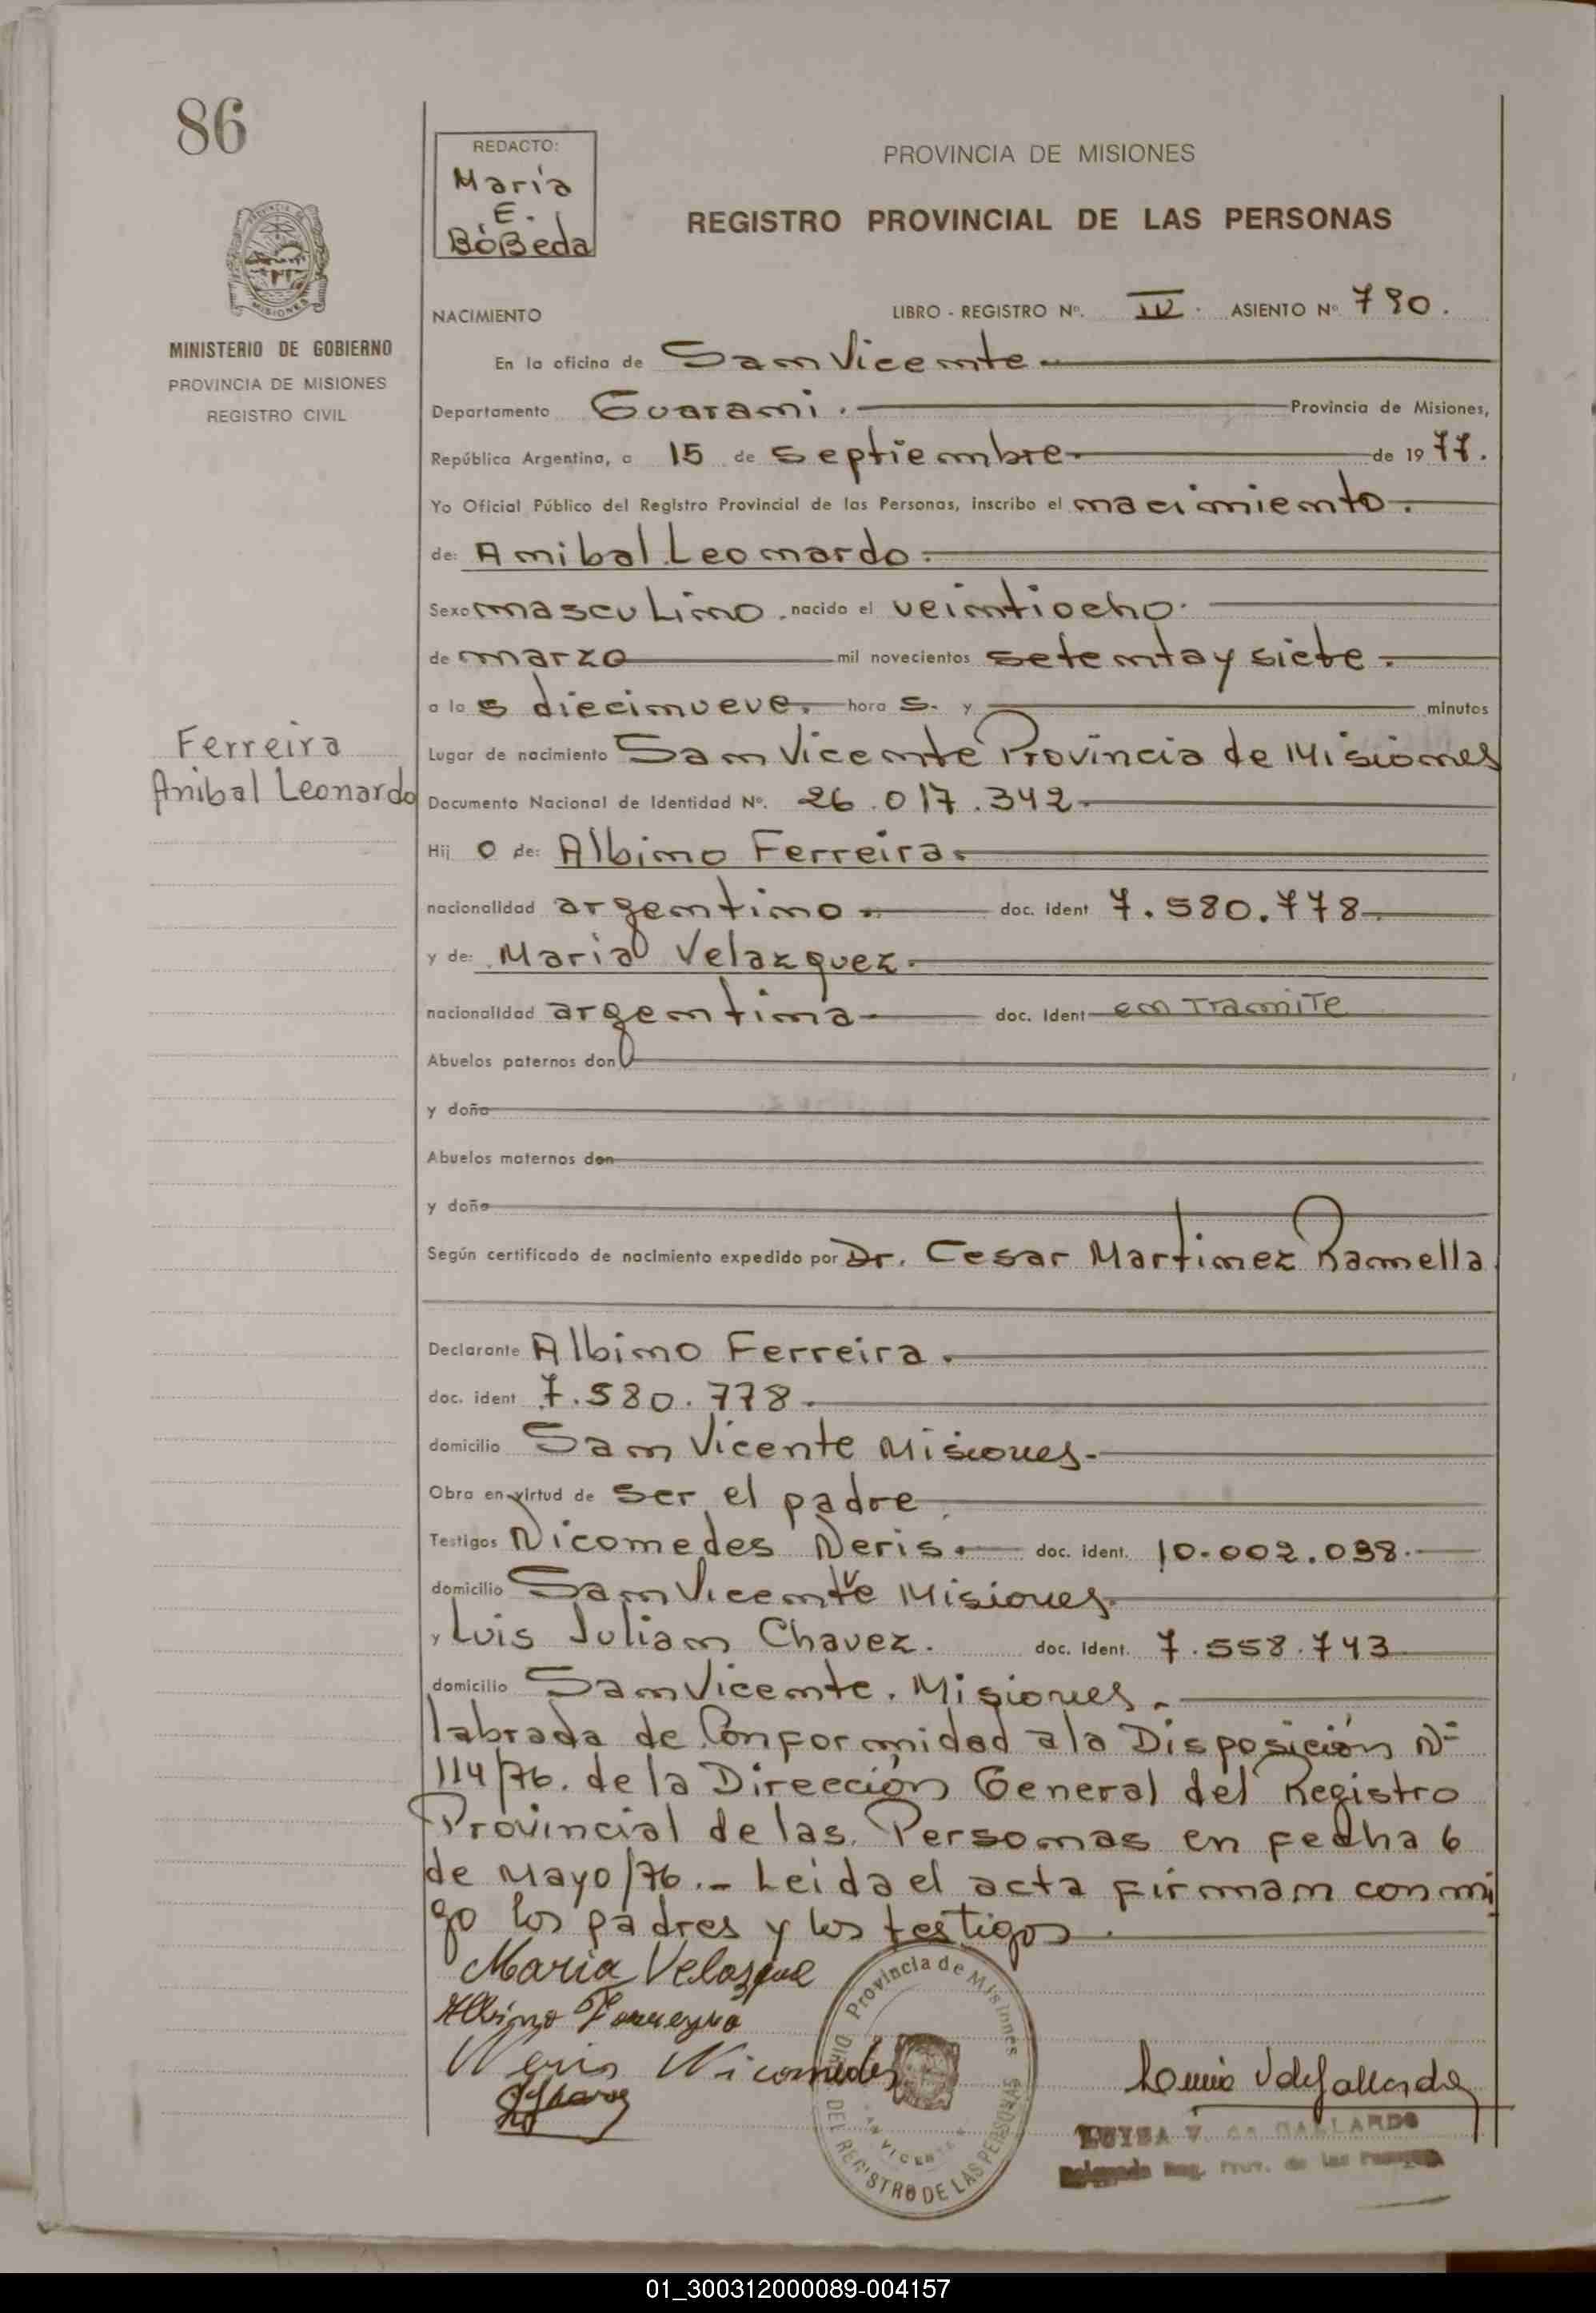 86
REDACTO:
María
E.
BóBeda
PROVINCIA DE MISIONES
REGISTRO PROVINCIAL DE LAS PERSONAS
MINISTERIO DE GOBIERNO
PROVINCIA DE MISIONES
REGISTRO CIVIL
NACIMIENTO LIBRO - REGISTRO Nº. IV. ASIENTO Nº 790.
En la oficina de San Vicente
Departamento Guarani. Provincia de Misiones,
República Argentina, a 15 de septiembre de 1977.
Yo Oficial Público del Registro Provincial de las Personas, inscribo el nacimiento.
de: Anibal Leonardo.
Sexo masculino. nacido el veintiocho.
de marzo mil novecientos setenta y siete.
a las diecinueve. horas. y minutos
Lugar de nacimiento San Vicente Provincia de Misiones
Ferreira
Anibal Leonardo
Documento Nacional de Identidad Nº. 26.017.342
Hijo de: Albino Ferreira.
nacionalidad argentino doc. ident 7.580.778
y de: Maria Velazquez.
nacionalidad argentina doc. ident en Tramite
Abuelos paternos don
y doña
Abuelos maternos don
y doña
Según certificado de nacimiento expedido por Dr. Cesar Martinez Ramella
Declarante Albino Ferreira.
doc. ident 7.580.778.
domicilio San Vicente Misiones.
Obra en virtud de ser el padre
Testigos Nicomedes Neris. doc. ident. 10.002.038.
domicilio San Vicente Misiones
y Luis Julian Chavez. doc. ident. 7.558.743
domicilio San Vicente. Misiones.
labrada de Conformidad a la Disposición Nº
114/76. de la Dirección General del Registro
Provincial de las Personas en fecha 6
de Mayo/76.- Leida el acta firman conmi
go los padres y los testigos.
Maria Velasque
Albino Ferreyra
Neris Nicomedes
Provincia de Misiones
DEL REGISTRO DE LAS PERSONAS
LUISA V. de GALLARDO
Delegada Reg. Prov. de las Personas
01_300312000089-004157